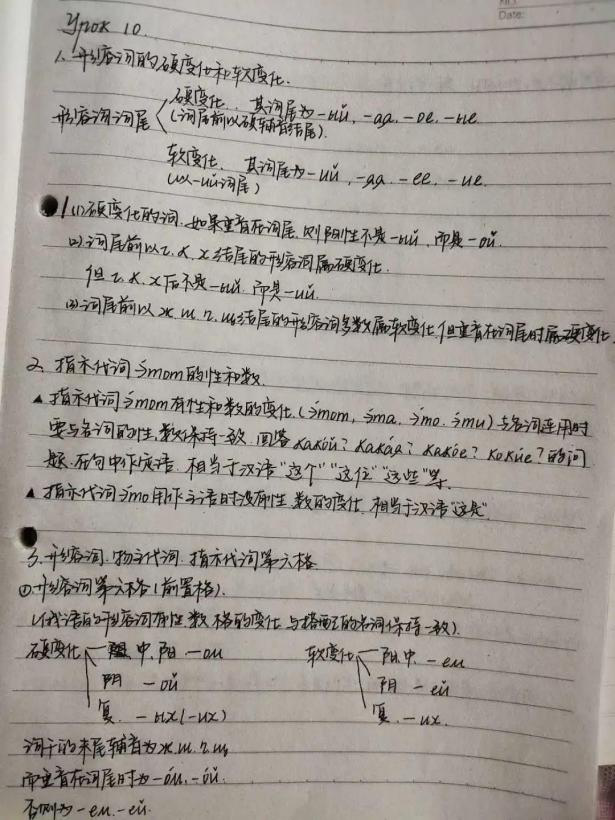 Date:
Урок 10.
1. 形容词的硬变化和软变化.
硬变化, 其词尾为 -ый, -ая, -ое, -ые
形容词词尾
(词尾前以硬辅音结尾).
软变化, 其词尾为 -ий, -яя, -ее, -ие.
(以-ий词尾)
(1) 硬变化的词, 如果重音在词尾, 则阳性不是 -ый, 而是 -ой.
(2) 词尾前以 г, к, х 结尾的形容词属硬变化.
但 г, к, х 后不是 -ый, 而是 -ий.
(3) 词尾前以 ж, ш, ч, щ 结尾的形容词多数属软变化, 但重音在词尾时属硬变化.
2. 指示代词 э́тот 的性和数.
▲ 指示代词 э́тот 有性和数的变化. (э́тот, э́та, э́то, э́ти) 与名词连用时
要与名词的性、数保持一致. 回答 како́й? кака́я? како́е? каки́е? 的问
题. 在句中作定语. 相当于汉语 "这个" "这位" "这些" 等.
▲ 指示代词 э́то 用作主语时没有性、数的变化. 相当于汉语 "这是".
3. 形容词. 物主代词. 指示代词第六格
① 形容词第六格 (前置格).
(俄语的形容词有性、数、格的变化 与搭配的名词保持一致).
硬变化 中, 阳 -ом 软变化 阳, 中 -ем
阴 -ой 阴 -ей
复. -ых (-их) 复. -их.
词干的末尾辅音为 ж, ш, ч, щ
而重音在词尾时为 -о́м, -о́й.
否则为 -ем, -ей.